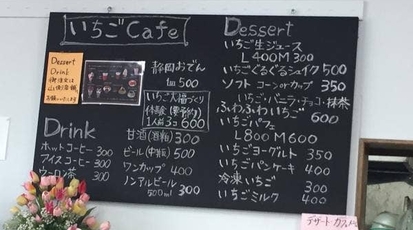 いちごCafe
Dessert
Drink
静岡おでん
1皿 500
いちご大福づくり
体験(要予約)
1人前3コ 600
Drink
ホットコーヒー 300
アイスコーヒー 300
ウーロン茶 300
甘酒(酒粕) 300
ビール(中瓶) 500
ワンカップ 400
ノンアルビール
500ml 300
Dessert
いちご生ジュース
L400M300
いちごぐるぐるシェイク 500
ソフト コーンorカップ 350
いちご・バニラ・チョコ・抹茶
ふわふわいちご 600
いちごパフェ
L800M600
いちごヨーグルト 350
いちごパンケーキ 400
冷凍いちご 300
いちごミルク 400
デザート・カフェ